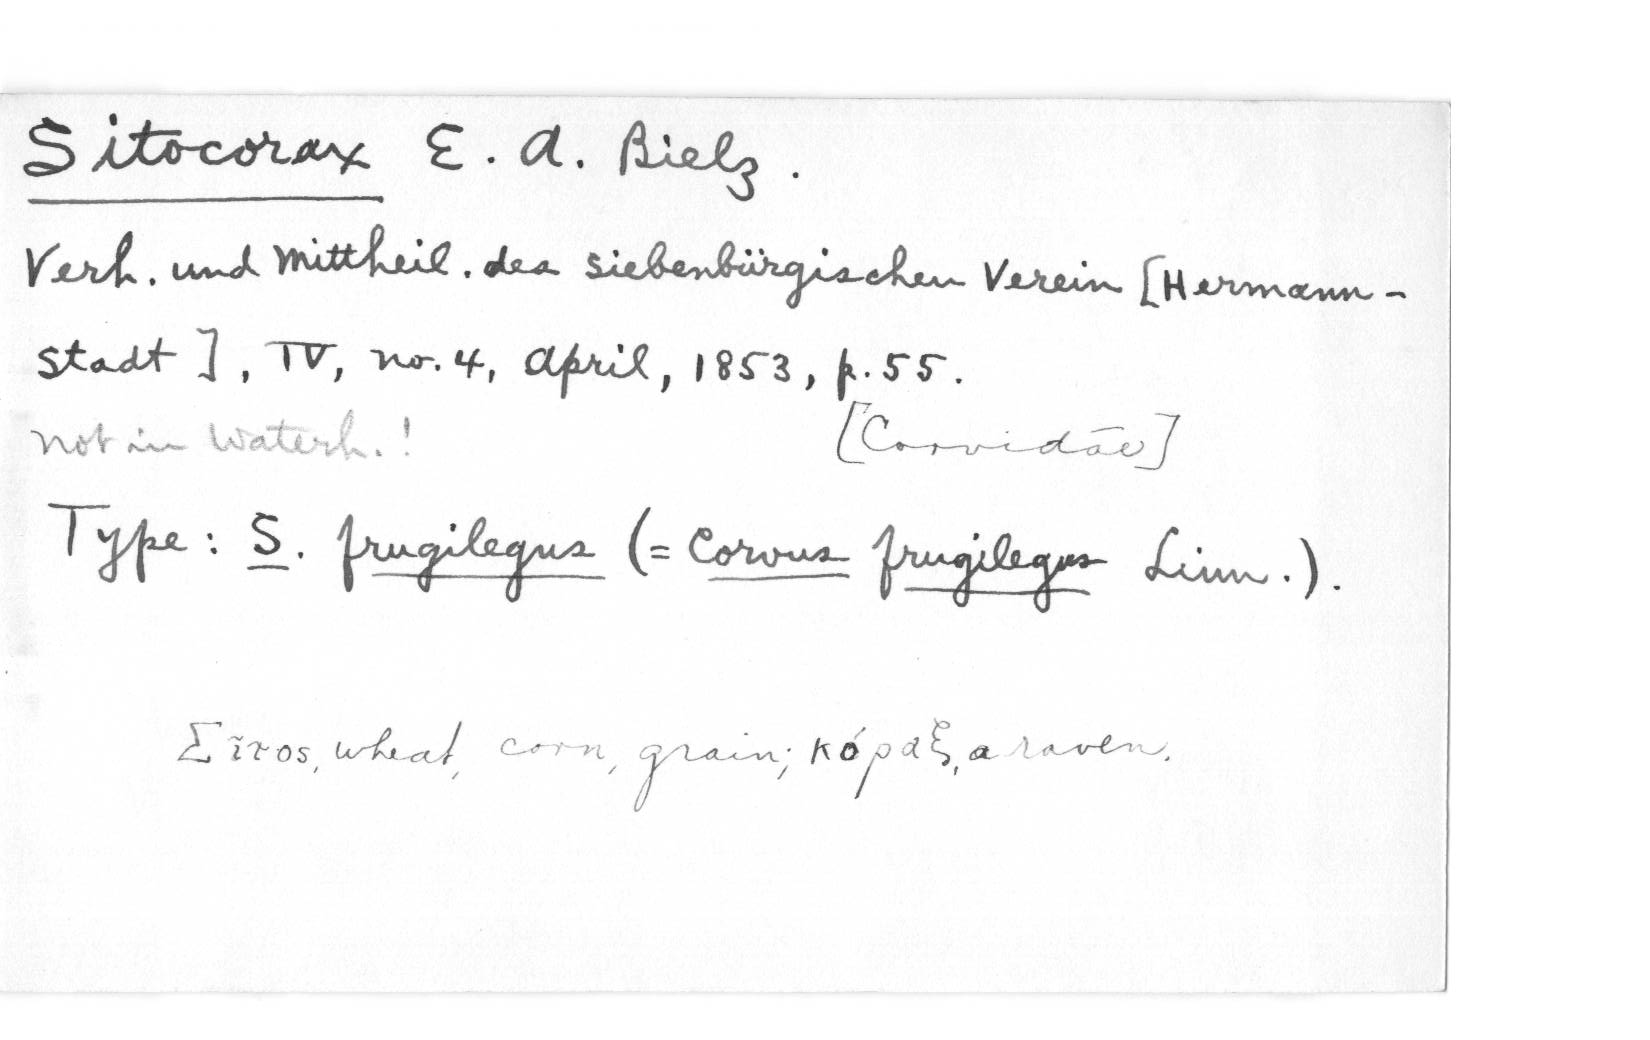 Sitocorax E. A. Bielz.
Verh. und Mittheil. des siebenbürgischen Verein [Hermann-
stadt], IV, no. 4, April, 1853, p. 55.
not in Waterh.!
[Corvidae]
Type: S. frugilegus (= Corvus frugilegus Linn.).
Σῖτος, wheat, corn, grain; κόραξ, a raven.